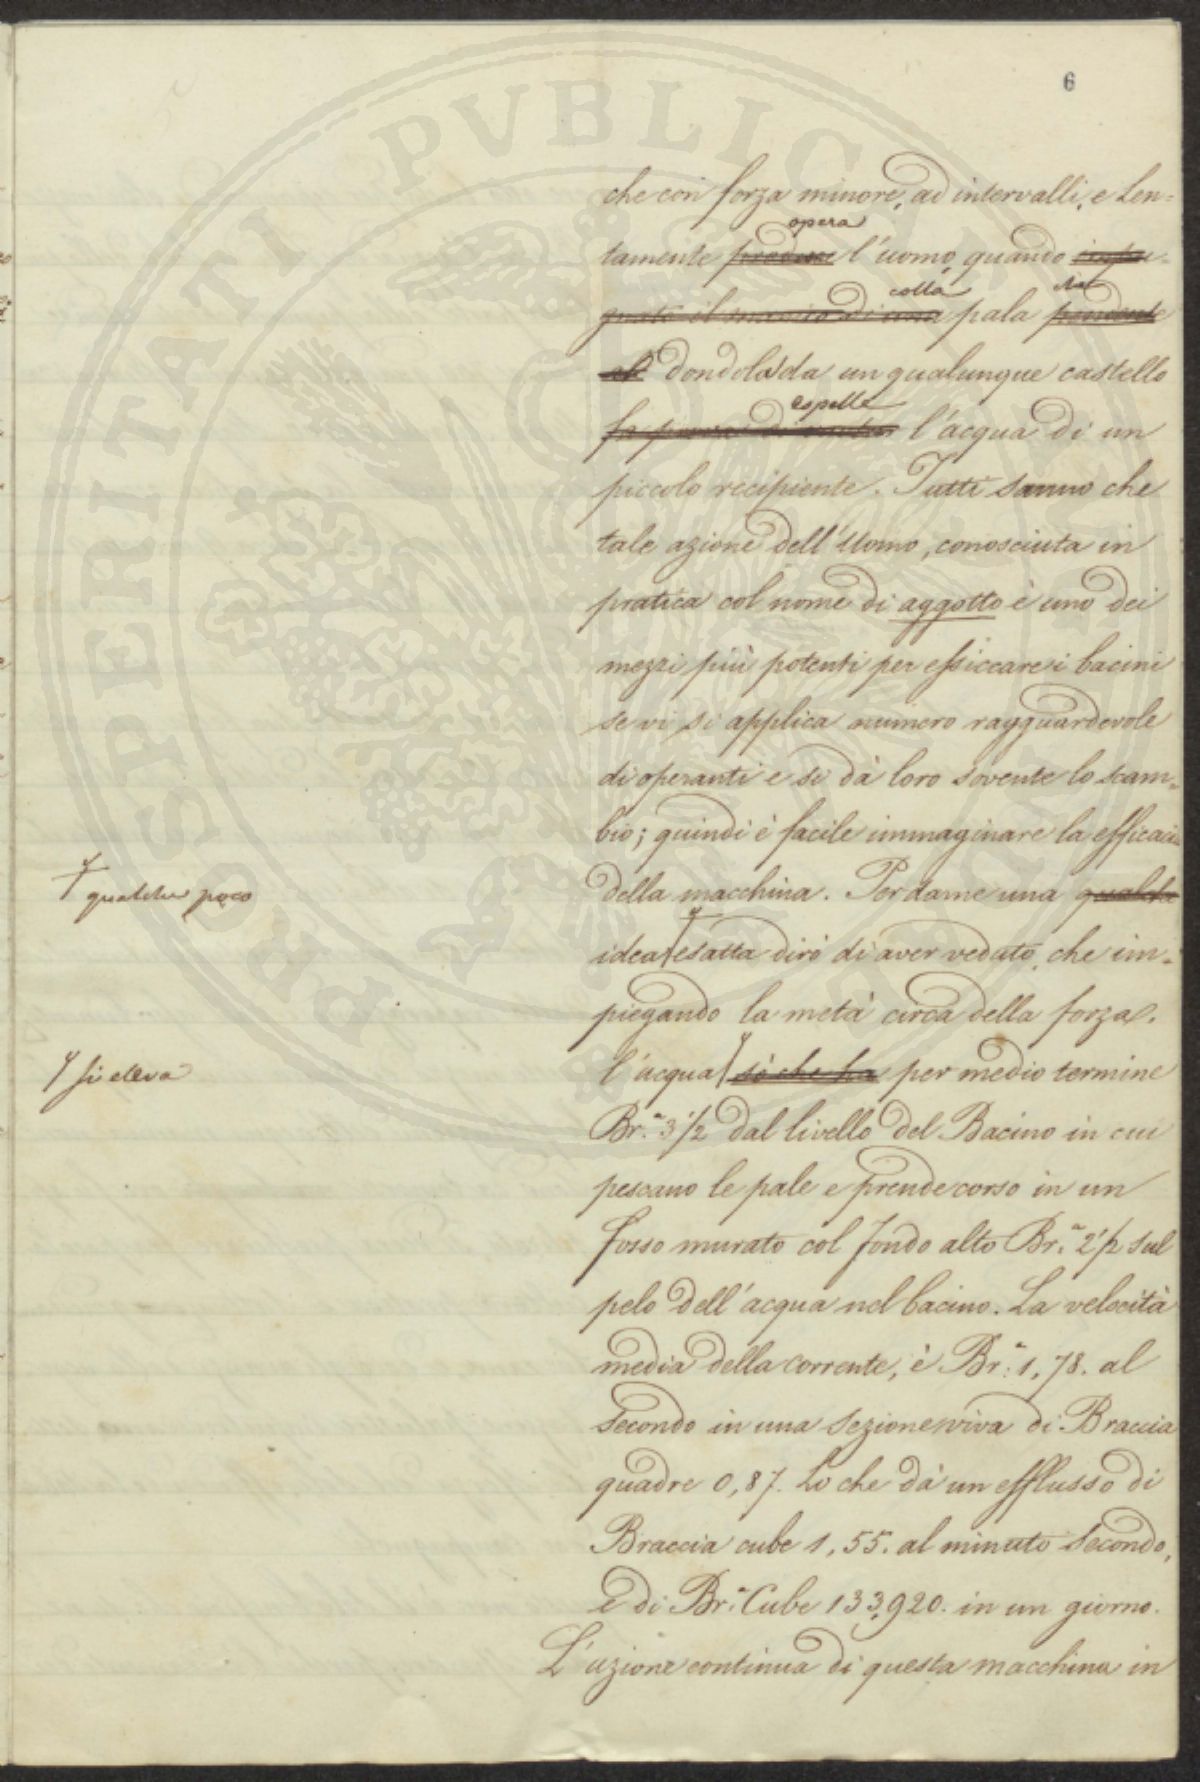 6
che con forza minore, ad intervalli, e len=
opera
tamente produce l'uomo, quando impu-
colla che
gnato il manico di una pala pendente
ed dondola da un qualunque castello
espelle
fa l'acqua di un
piccolo recipiente. Tutti sanno che
tale azione dell'Uomo, conosciuta in
pratica col nome di aggotto è uno dei
mezzi più potenti per essiccare i bacini
se vi si applica numero ragguardevole
di operanti e si dà loro sovente lo scam=
bio; quindi è facile immaginare la efficacia
qualche poco
della macchina. Per darne una qualche
idea esatta dirò di aver veduto, che im=
piegando la metà circa della forza.
si eleva
l'acqua si che ha per medio termine
Br.ª 3 1/2 dal livello del Bacino in cui
pescano le pale e prende corso in un
fosso murato col fondo alto Br.ª 2 1/2 sul
pelo dell'acqua nel bacino. La velocità
media della corrente, è Br.ª 1,78. al
secondo in una sezione viva di Braccia
quadre 0,87. Lo che dà un efflusso di
Braccia cube 1,55. al minuto secondo,
e di Br.ª Cube 133,920. in un giorno.
L'azione continua di questa macchina in
PROSPERITATI PVBLICAE